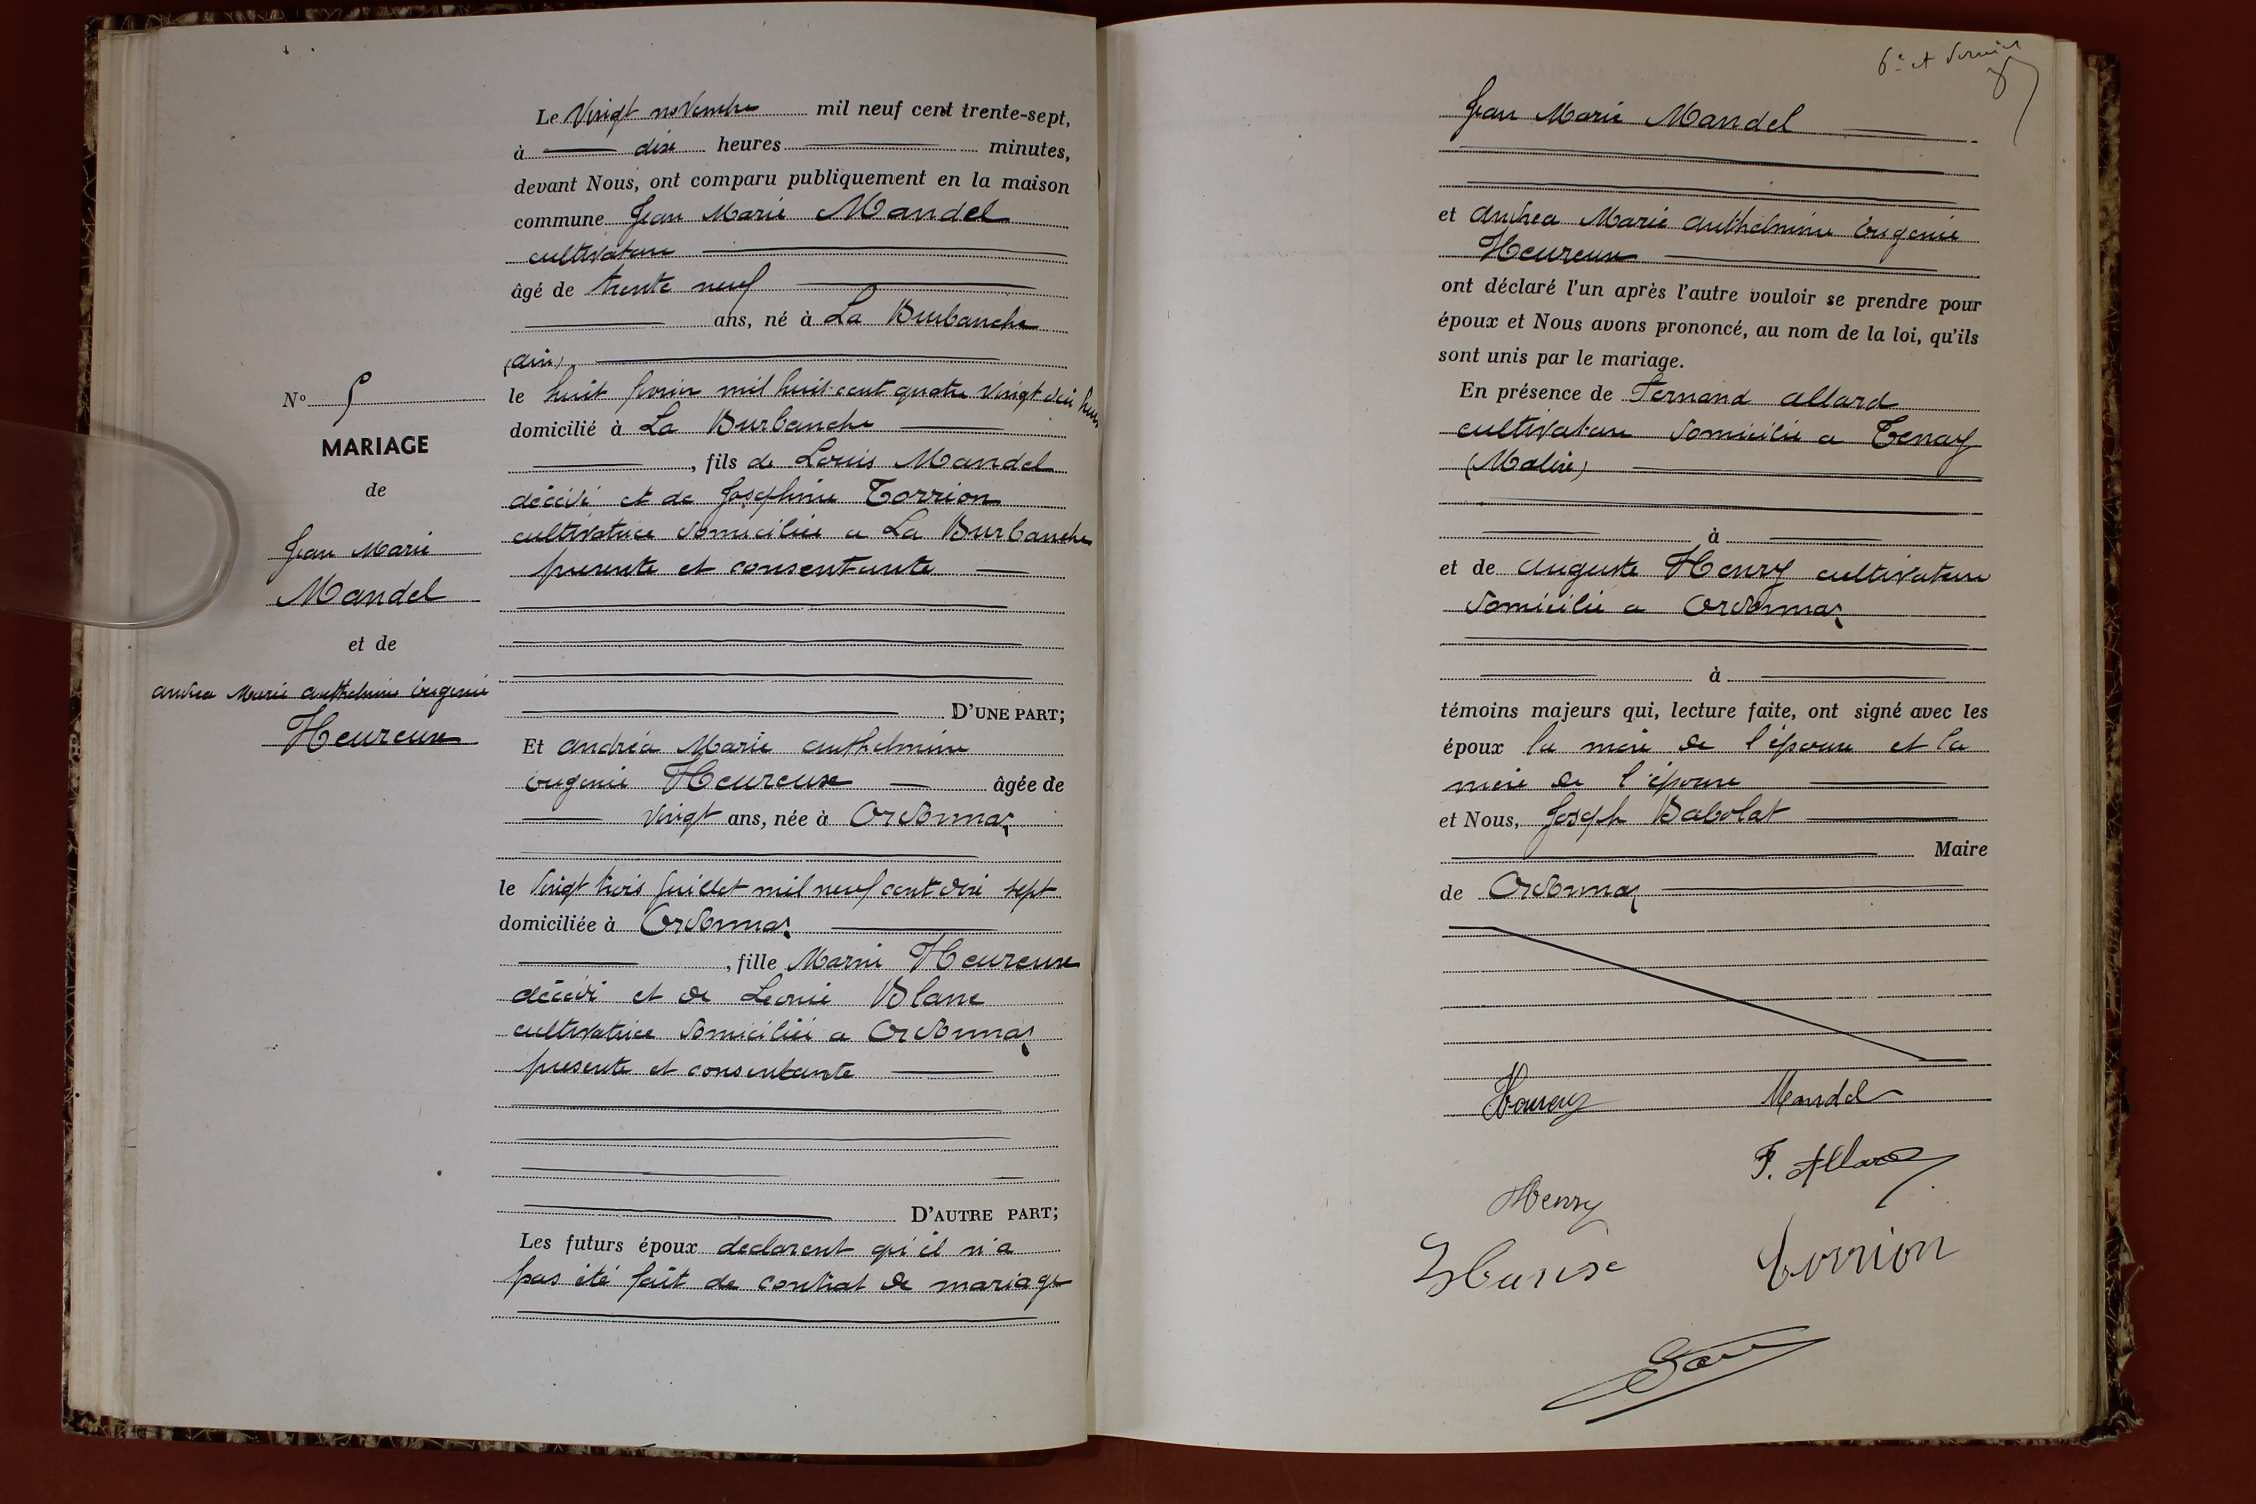 Le Vingt novembre mil neuf cent trente-sept,
à dix heures minutes,
devant Nous, ont comparu publiquement en la maison
commune Jean Marie Mandel
cultivateur
âgé de trente neuf
ans, né à La Burbanche
(Ain)
le huit février mil huit cent quatre vingt dix huit
domicilié à La Burbanche
, fils de Louis Mandel
décédé et de Joséphine Torrion
cultivatrice domiciliée a La Burbanche
presente et consentante
D'UNE PART;
Et Andréa Marie Anthelmine
Eugenie Heureux âgée de
vingt ans, née à Ordonnaz
le vingt trois Juillet mil neuf cent dix sept
domiciliée à Ordonnaz
, fille Marius Heureux
décédé et de Leonie Blanc
cultivatrice domiciliée a Ordonnaz
presente et consentante
D'AUTRE PART;
Les futurs époux declarent qu'il n'a
pas été fait de contrat de mariage
No 5
MARIAGE
de
Jean Marie
Mandel
et de
Andrea Marie Anthelmine Eugenie
Heureux
6e et dernier
Jean Marie Mandel
et Andrea Marie Anthelmine Eugenie
Heureux
ont déclaré l'un après l'autre vouloir se prendre pour
époux et Nous avons prononcé, au nom de la loi, qu'ils
sont unis par le mariage.
En présence de Fernand Allard
cultivateur domicilié a Tenay
(Malix)
à
et de Auguste Henry cultivateur
domicilié a Ordonnaz
à
témoins majeurs qui, lecture faite, ont signé avec les
époux la mère de l'époux et la
mère de l'épouse
et Nous, Joseph Babolat
Maire
de Ordonnaz
Heureux Mandel
F. Allard
Henry
Torrion